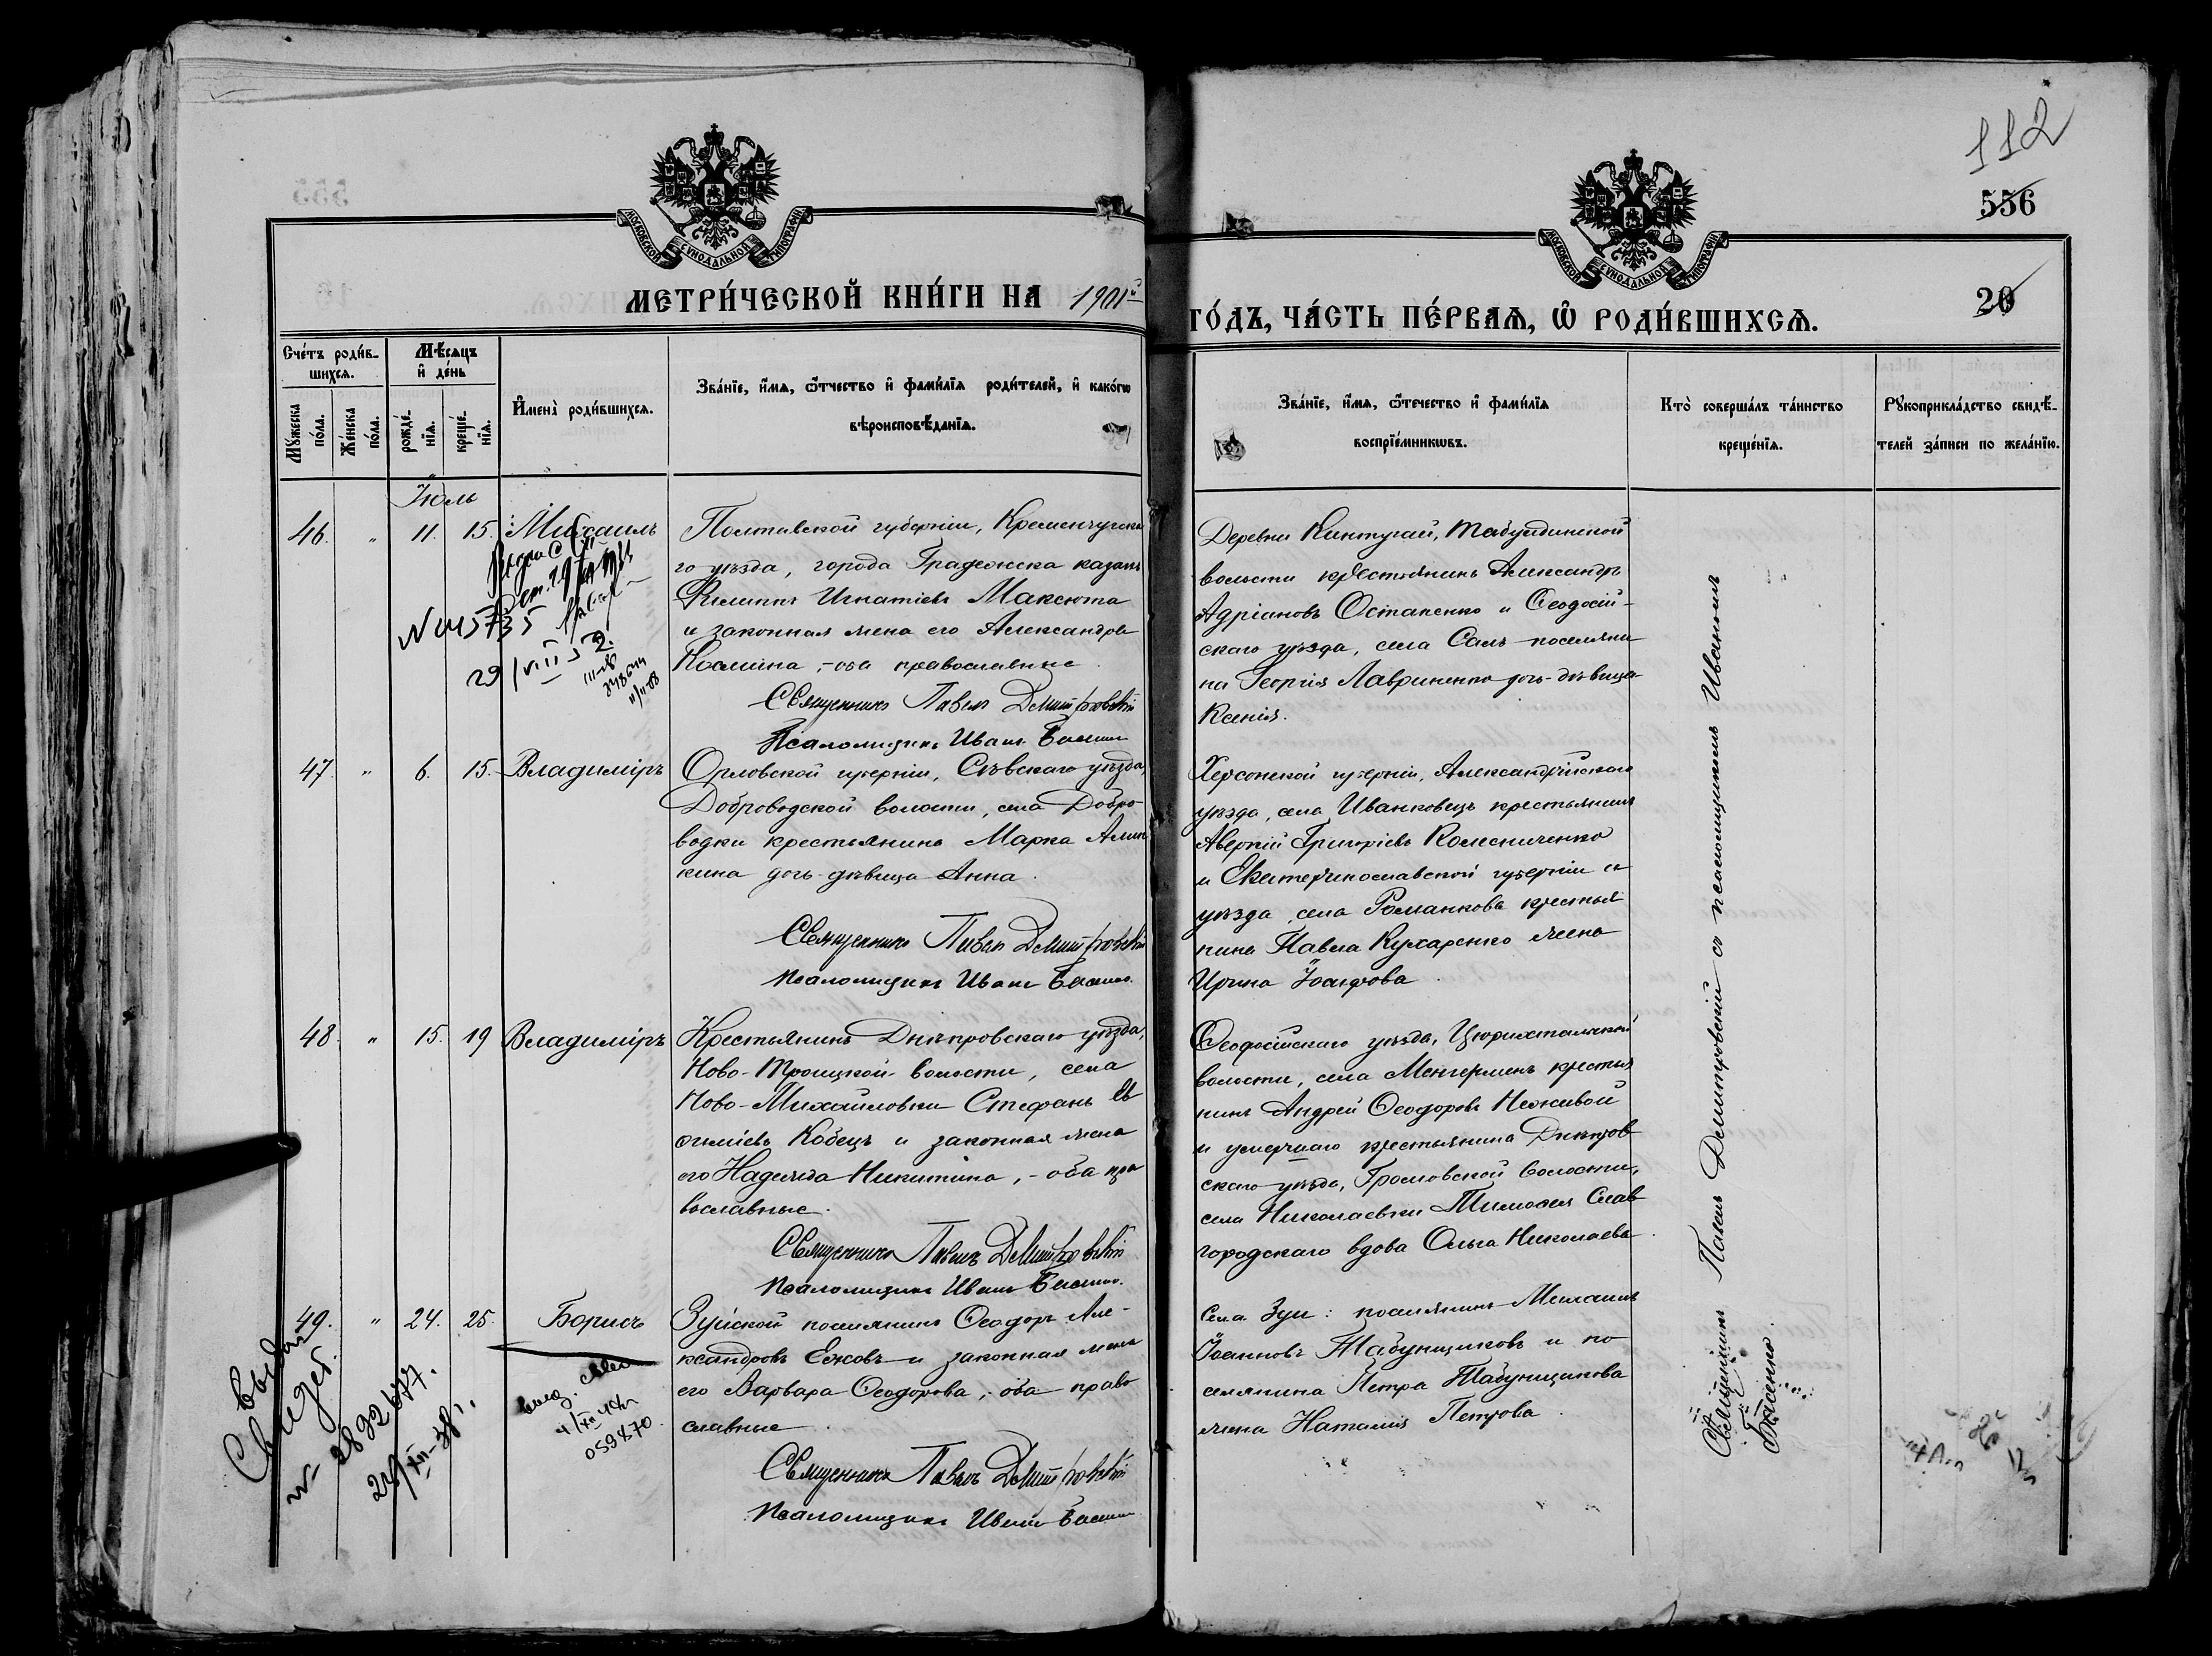 112
556
20
МОСКОВСКОЙ СѴНОДАЛЬНОЙ ТИПОГРАФІИ
МОСКОВСКОЙ СѴНОДАЛЬНОЙ ТИПОГРАФІИ
МЕТРИ́ЧЕСКОЙ КНИ́ГИ НА 1901й
ГО́ДЪ, ЧА́СТЬ ПЕ́РВАѦ, Ѿ РОДИ́ВШИХСѦ.
Сче́тъ роди́в-
шихсѧ.
Мѣсѧцъ
и҆ де́нь
Мꙋ́жеска
по́ла.
Же́нска
по́ла.
рожде́-
нїѧ.
креще́-
нїѧ.
И҆мена̀ роди́вшихсѧ.
Зва́нїе, и҆́мѧ, ѻ҆́тчество и҆ фами́лїѧ роди́телей, и҆ како́гѡ
вѣроисповѣ́данїѧ.
Зва́нїе, и҆́мѧ, ѻ҆́течество и҆ фами́лїѧ
воспрїе́мникѡвъ.
Кто̀ соверша́лъ та́инство
креще́нїѧ.
Рꙋкоприкла́дство свидѣ́-
телей за́писи по жела́нїю.
Іюль
46. " 11. 15. Михаилъ
Полтавской губерніи, Кременчугска
го уѣзда, города Градежска казакъ
Филиппъ Игнатіевъ Максюта
и законная жена его Александра
Космина, - оба православные.
Священникъ Павелъ Димитровскій
Псаломщикъ Иванъ Басенко
Деревни Кинтугай, Табулдинской
волости крестьянинъ Александръ
Адріановъ Остапенко и Ѳеодосій-
скаго уѣзда, села Салъ поселяни
на Георгія Лавриненко дочь-дѣвица
Ксенія.
29/VIII
47. " 6. 15. Владиміръ
Орловской губерніи, Сѣвскаго уѣзда,
Доброводской волости, села Добро-
водки крестьянина Марка Алин
кина дочь-дѣвица Анна.
Священникъ Павелъ Димитровскій
Псаломщикъ Иванъ Басенко.
Херсонской губерніи, Александрійскаго
уѣзда, села Иванковецъ крестьянинъ
Аверкій Григоріевъ Колесниченко
и Екатеринославской губерніи и
уѣзда, села Романкова крестья
нина Павла Кухаренко жена
Ирина Іосифова.
48. " 15. 19 Владиміръ
Крестьянинъ Днѣпровскаго уѣзда,
Ново-Троицкой волости, села
Ново-Михайловки Стефанъ Ев
ѳиміевъ Кобецъ и законная жена
его Надежда Никитина, - оба пра
вославные.
Священникъ Павелъ Димитровскій
Псаломщикъ Иванъ Басенко.
Ѳеодосійскаго уѣзда, Цюрихтальской
волости, села Менгерменъ крестья
нинъ Андрей Ѳеодоровъ Неживой
и умершаго крестьянина Днѣпров
скаго уѣзда, Громовской волости,
села Николаевки Тимоѳея Слав
городскаго вдова Ольга Николаева.
49. " 24. 25. Борисъ
Зуйской поселянинъ Ѳеодоръ Але-
ксандровъ Ежовъ и законная жена
его Варвара Ѳеодорова, оба право
славные.
Священникъ Павелъ Димитровскій
Псаломщикъ Иванъ Басенко
Села Зуи: поселянинъ Михаилъ
Іоанновъ Табунщиковъ и по
селянина Петра Табунщикова
жена Наталія Петрова.
Выдан
Свидет.
059870
Священникъ Павелъ Димитровскій съ псаломщикомъ Иваномъ
Басенко.